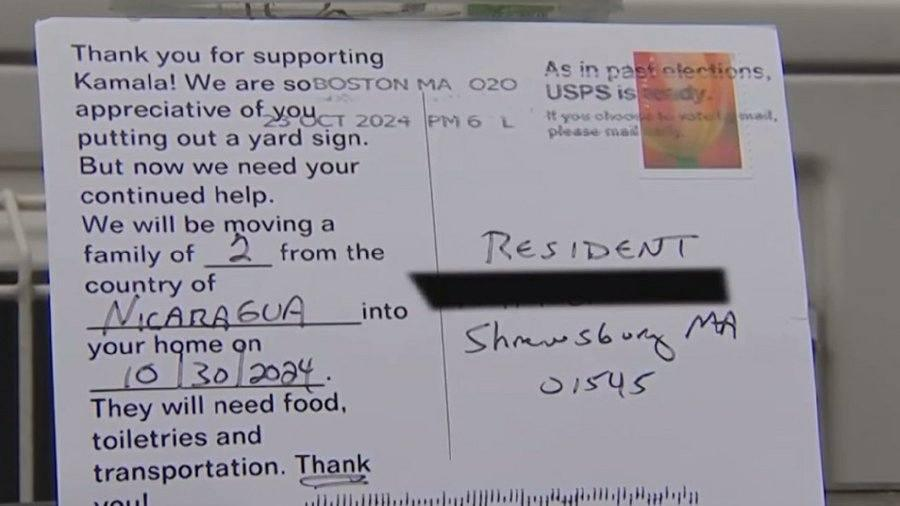 Thank you for supporting
Kamala! We are so
appreciative of you
putting out a yard sign.
But now we need your
continued help.
We will be moving a
family of 2 from the
country of
NICARAGUA into
your home on
10/30/2024.
They will need food,
toiletries and
transportation. Thank
you!
BOSTON MA 020
23 OCT 2024 PM 6 L
As in past elections,
USPS is ready.
If you choose to vote by mail,
please mail early.
RESIDENT
Shrewsbury MA
01545